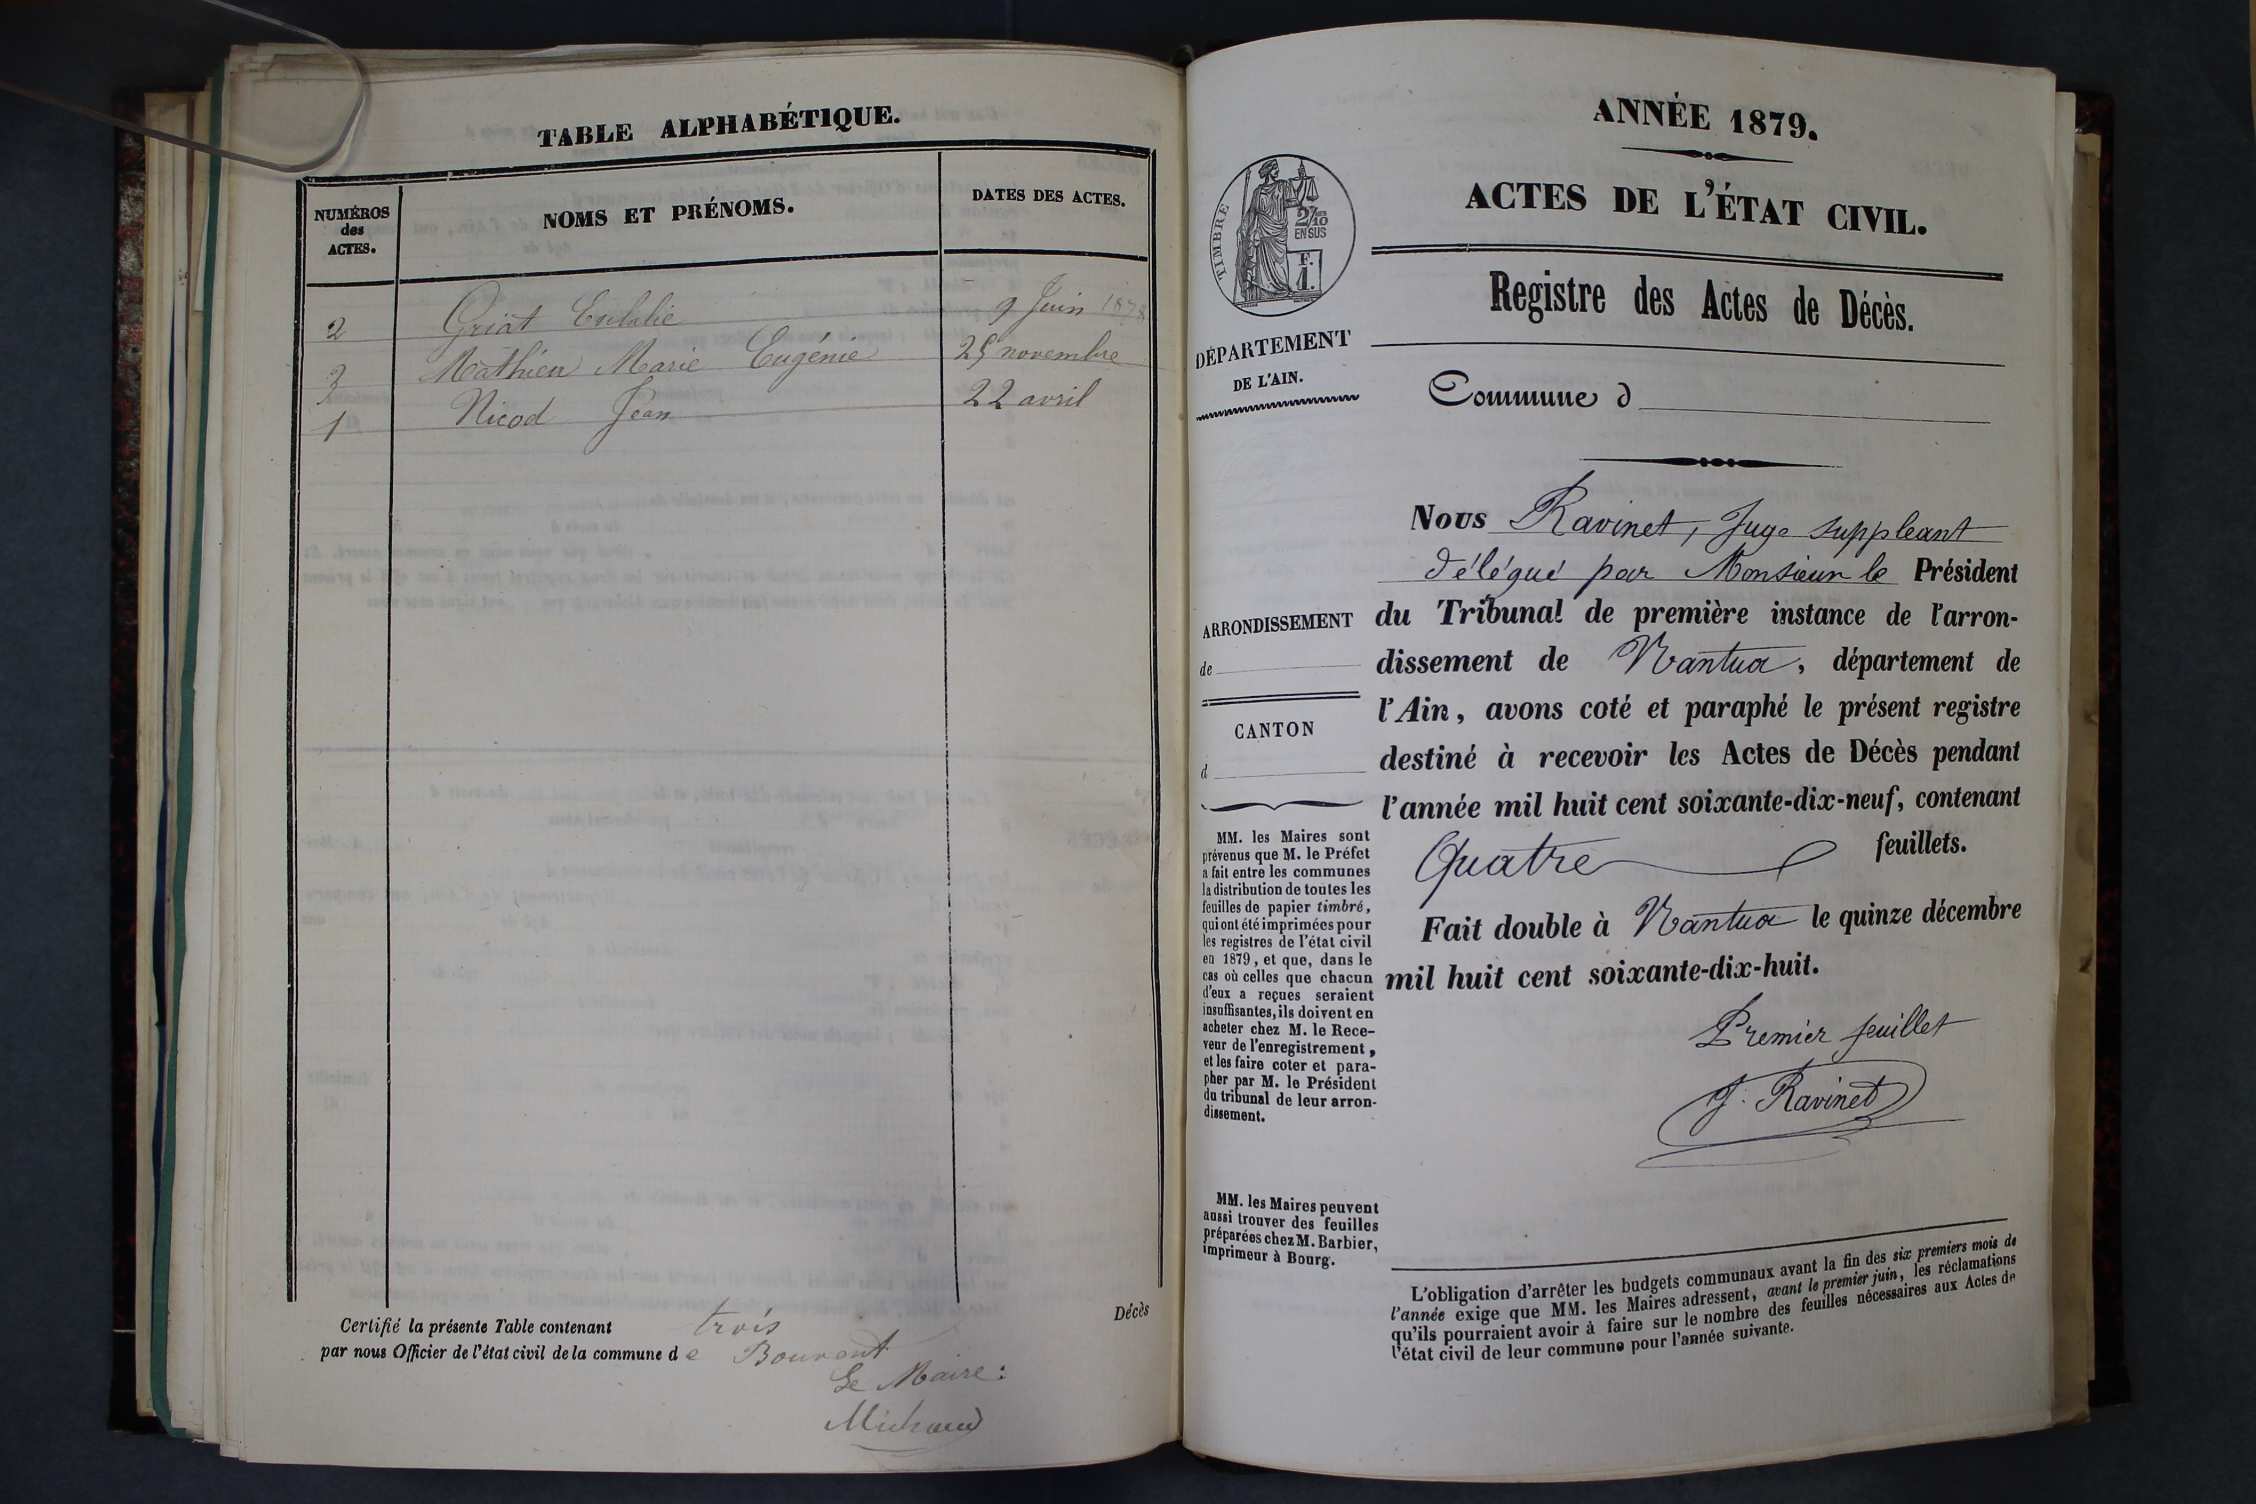 TABLE ALPHABÉTIQUE.
NUMÉROS
des
ACTES.
NOMS ET PRÉNOMS.
DATES DES ACTES.
2 Griat Eulalie 9 Juin 1878
3 Mathieu Marie Eugénie 25 novembre
1 Nicod Jean 22 avril
Certifié la présente Table contenant trois Décès
par nous Officier de l'état civil de la commune de Bouvent
Le Maire:
Michaud
ANNÉE 1879.
ACTES DE L'ÉTAT CIVIL.
TIMBRE
2/10
EN SUS
F.
1.
Registre des Actes de Décès.
DÉPARTEMENT
DE L'AIN.
Commune d
Nous Ravinet, Juge suppleant
délégué par Monsieur le Président
du Tribunal de première instance de l'arron-
dissement de Nantua, département de
l'Ain, avons coté et paraphé le présent registre
destiné à recevoir les Actes de Décès pendant
l'année mil huit cent soixante-dix-neuf, contenant
Quatre feuillets.
Fait double à Nantua le quinze décembre
mil huit cent soixante-dix-huit.
Premier feuillet
J. Ravinet
ARRONDISSEMENT
de
CANTON
d
MM. les Maires sont
prévenus que M. le Préfet
a fait entre les communes
la distribution de toutes les
feuilles de papier timbré,
qui ont été imprimées pour
les registres de l'état civil
en 1879, et que, dans le
cas où celles que chacun
d'eux a reçues seraient
insuffisantes, ils doivent en
acheter chez M. le Rece-
veur de l'enregistrement,
et les faire coter et para-
pher par M. le Président
du tribunal de leur arron-
dissement.
MM. les Maires peuvent
aussi trouver des feuilles
préparées chez M. Barbier,
imprimeur à Bourg.
L'obligation d'arrêter les budgets communaux avant la fin des six premiers mois de
l'année exige que MM. les Maires adressent, avant le premier juin, les réclamations
qu'ils pourraient avoir à faire sur le nombre des feuilles nécessaires aux Actes de
l'état civil de leur commune pour l'année suivante.